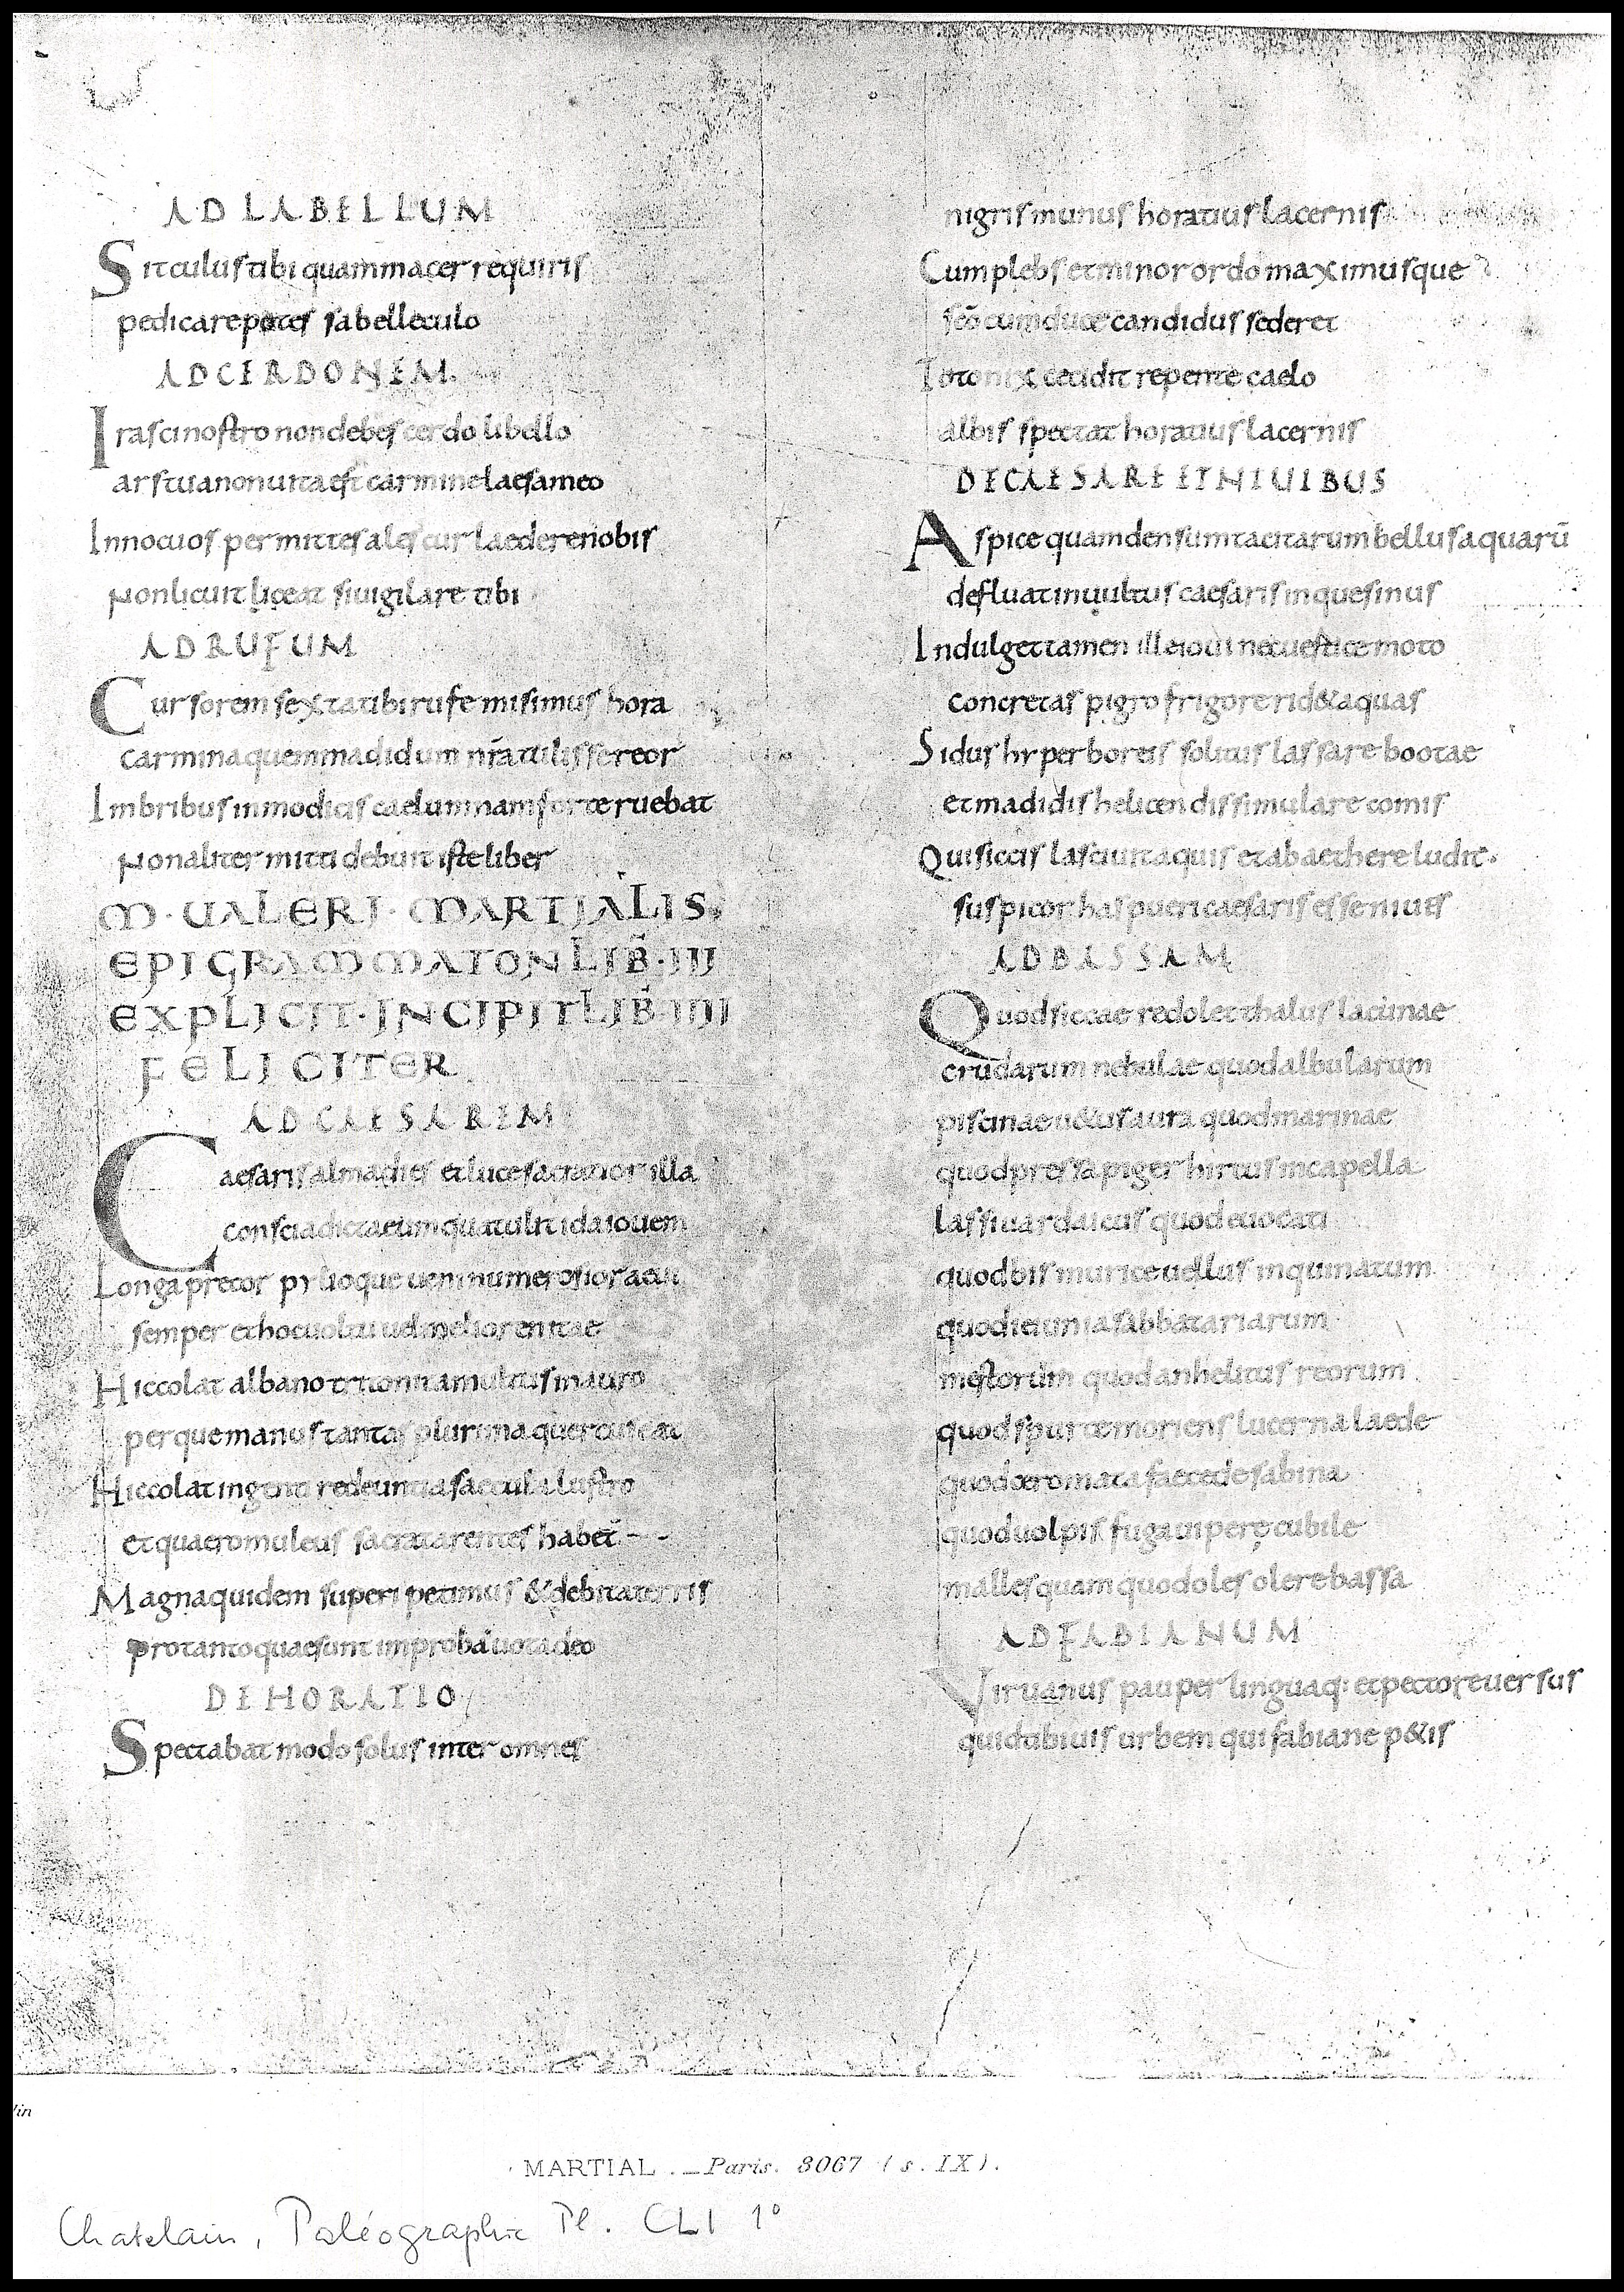 AD LABELLUM
Sit culus tibi quam macer requiris
pedicare potes sabelle culo
AD CERDONEM
Irasci nostro non debes cerdo libello
ars tua non uita est carmine laesa meo
Innocuos permittes ales cur laedere nobis
non licuit liceat si uigilare tibi
AD RUFUM
Cursorem sexta tibi rufe misimus hora
carmina quem madidum nr̄a tulisse reor
Imbribus inmodicis caelum nam forte ruebat
non aliter mitti debuit iste liber
M · UALERI · MARTIALIS
EPIGRAMMATON LIB̄ · III
EXPLICIT · INCIPIT LIB̄ IIII
FELICITER
AD CAESAREM
Caesaris alma dies et luce sacratior illa
conscia dictaeum qua tulit ida iouem
Longa precor pylioque ueni numerosior aeui
semper et hoc uoltu uel meliore nite
Hic colat albano tritonnam multus in auro
perque manus tantas plurima quercus eat
Hic colat ingenti redeuntia saecula lustro
et quae romuleus sacra tarentes habet
Magna quidem superi petimus & debita terris
pro tanto quae sunt improba uota deo
DE HORATIO
Spectabat modo solus inter omnes
nigris munus horatius lacernis
Cum plebs et minor ordo maximusque
sc̄o cum duce candidus sederet
Toto nix cecidit repente caelo
albis spectat horatius lacernis
DE CAESARE ET NIUIBUS
Aspice quam densum tacitarum bellus aquarū
defluat in uultus caesaris inque sinus
Indulget tamen ille ioui nec uertice moto
concretas pigro frigore rid& aquas
Sidus hyperboreis solitus lassare bootae
et madidis helicen dissimulare comis
Qui siccis lasciuit aquis et ab aethere ludit.
suspicor has pueri caesaris esse niues
AD BASSAM
Quod siccae redolet thalus lacunae
crudarum nebulae quod albularum
piscinae u&us aura quod marinae
quod pressa piger hircus in capella
lassi uardaicus quod euocati
quod bis murice uellus inquinatum
quod ieiunia sabbatariarum
mestorum quod anhelitus reorum
quod spurcae moriens lucerna laede
quod ceromata faece de sabina
quod uolpis fuga uiperę cubile
malles quam quod oles olere bassa
AD FABIANUM
Vir uanus pauper linguaq: et pectore uersus
quid tibi uis urbem qui fabiane p&is
lin
MARTIAL. — Paris. 8067 (s. IX).
Chatelain, Paléographie Pl. CLI 1°